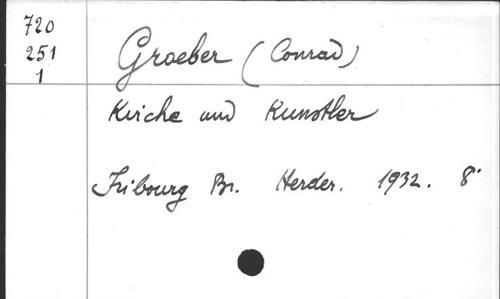 720
251
1
Groeber (Conrad)
Kirche und Kunstler
Fribourg Br. Herder. 1932. 8°